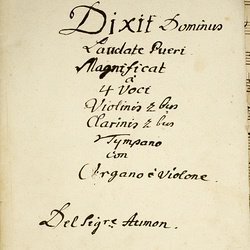 Dixit Dominus
Laudate Pueri
Magnificat
à
4 Voci
Violinis 2bus
Clarinis 2bus
Tympano
con
Organo è Violone.
Del Sigre. Aumon.